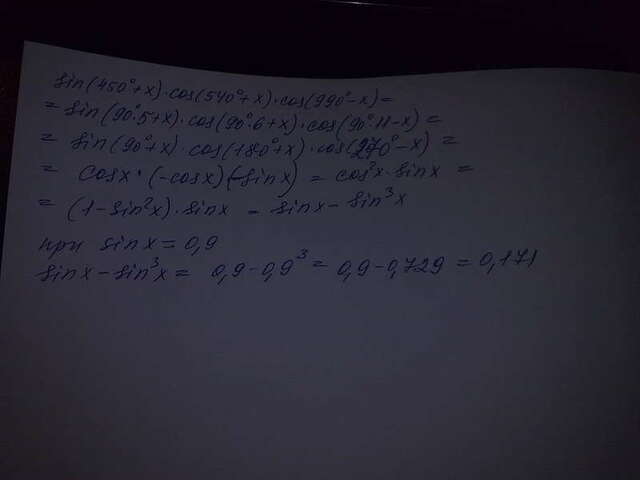 sin(450°+x)·cos(540°+x)·cos(990°-x)=
= sin(90°·5+x)·cos(90°·6+x)·cos(90°·11-x)=
= sin(90°+x)·cos(180°+x)·cos(270°-x)=
= cosx·(-cosx)(-sinx) = cos²x·sinx =
= (1-sin²x)·sinx = sinx-sin³x
при sinx=0,9
sinx-sin³x= 0,9-0,9³=0,9-0,729=0,171